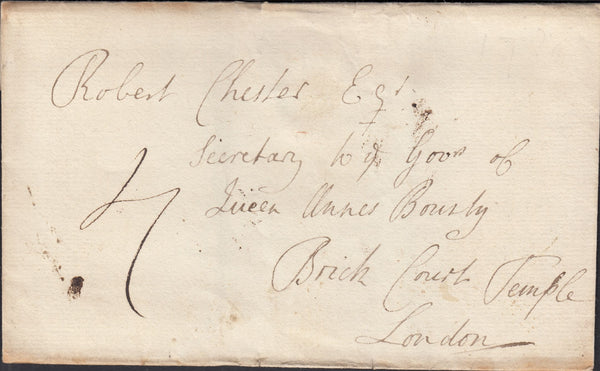 Robert Chester Esqr
Secretary to ye Govrs of
Queen Annes Bounty
Brick Court Temple
London